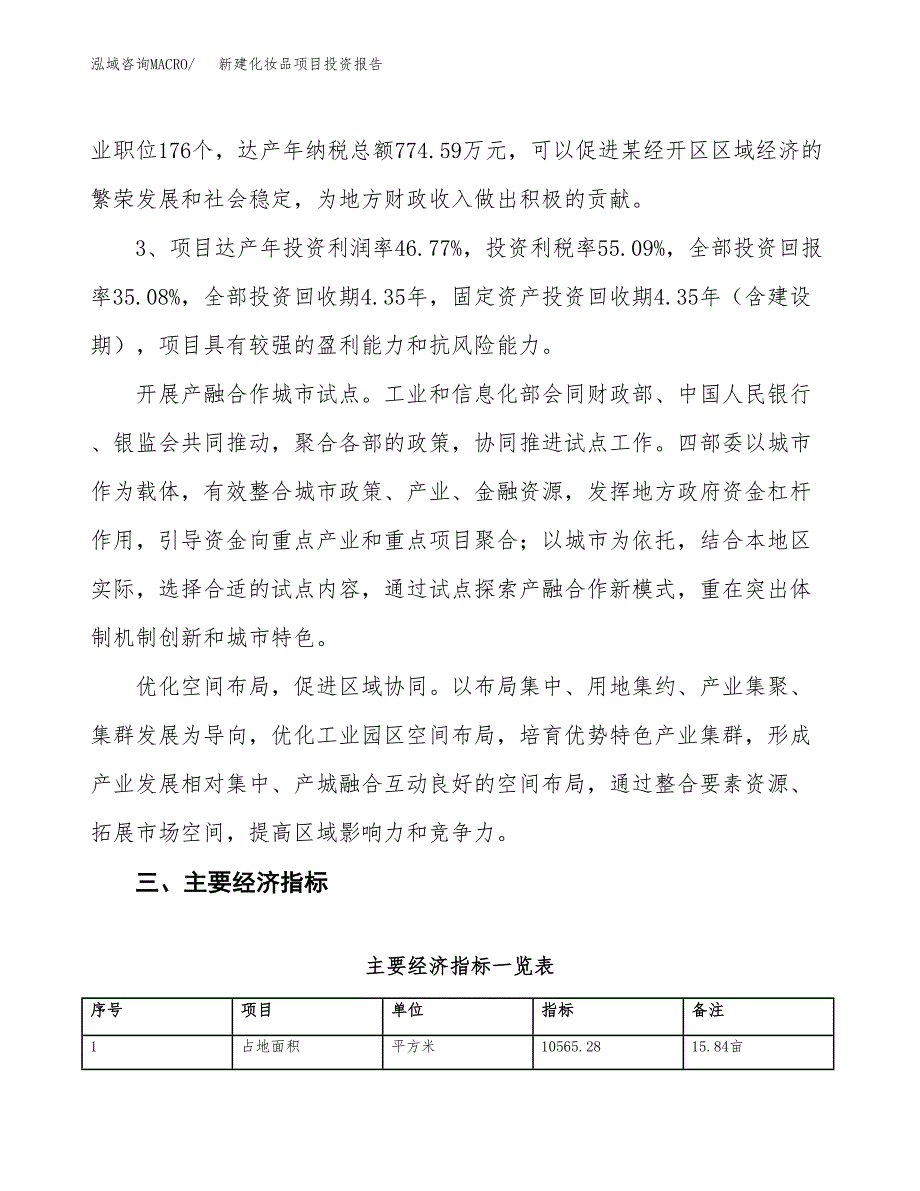 泓域咨询MACRO/ 新建化妆品项目投资报告
业职位176个，达产年纳税总额774.59万元，可以促进某经开区区域经济的
繁荣发展和社会稳定，为地方财政收入做出积极的贡献。
3、项目达产年投资利润率46.77%，投资利税率55.09%，全部投资回报
率35.08%，全部投资回收期4.35年，固定资产投资回收期4.35年（含建设
期），项目具有较强的盈利能力和抗风险能力。
开展产融合作城市试点。工业和信息化部会同财政部、中国人民银行
、银监会共同推动，聚合各部的政策，协同推进试点工作。四部委以城市
作为载体，有效整合城市政策、产业、金融资源，发挥地方政府资金杠杆
作用，引导资金向重点产业和重点项目聚合；以城市为依托，结合本地区
实际，选择合适的试点内容，通过试点探索产融合作新模式，重在突出体
制机制创新和城市特色。
优化空间布局，促进区域协同。以布局集中、用地集约、产业集聚、
集群发展为导向，优化工业园区空间布局，培育优势特色产业集群，形成
产业发展相对集中、产城融合互动良好的空间布局，通过整合要素资源、
拓展市场空间，提高区域影响力和竞争力。
三、主要经济指标
主要经济指标一览表
序号 项目 单位 指标 备注
1 占地面积 平方米 10565.28 15.84亩